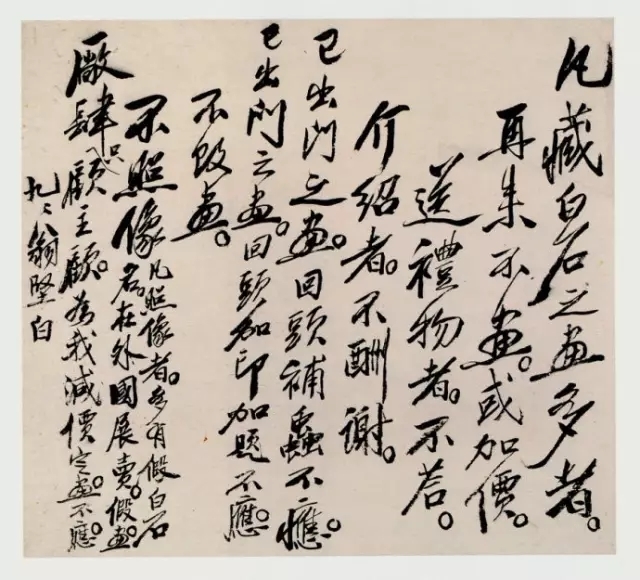 凡藏白石之畫多者。
再来不畫。或加價。
送禮物者。不荅。
介紹者。不酬謝。
已出門之畫。回頭補蟲不應。
已出門之畫。回頭加印加題不應。
不改畫。
不照像。凡照像者。多有假白石
名。在外國展賣。假畫。
廠肆只顧主顧。為我減價定畫。不應。
翁堅白